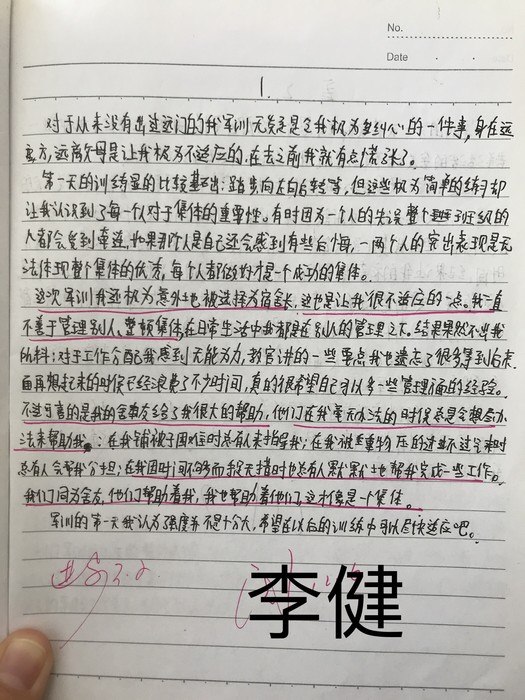 No.
Date
1.
对于从来没有出过远门的我军训无疑是令我极为纠心的一件事,身在远
方,远离父母是让我极为不适应的,在去之前我就有点慌张了。
第一天的训练显的比较基础:踏步向左向右转等,但这些极为简单的练习却
让我认识到了每一个人对于集体的重要性。有时因为一个人的失误整个班级的
人都会受到牵连,如果那个人是自己还会感到有些后悔,一两个人的突出表现是无
法体现整个集体的优秀,每个人都做好才是一个成功的集体。
这次军训我还极为意外地被选择为宿舍长,这也是让我很不适应的一点。我一直
不善于管理别人、整顿集体,在日常生活中我都是在别人的管理之下。结果果然不出我
所料:对于工作分配我感到无能为力,教官讲的一些要点我也遗忘了很多等到后来
再想起来的时候已经浪费了不少时间,真的很希望自己可以多一些管理方面的经验。
不过可喜的是我的舍友给了我很大的帮助,他们在我毫无办法的时候总是会想尽办
法来帮助我:在我铺被子困难时总有人来指导我;在我被重物压的进步不过气来时
总有人会帮我分担;在我因时间不够而怨天措时也总有人默默地帮我完成一些工作。
我们同为舍友,他们帮助着我,我也帮助着他们,这才像是一个集体。
军训的第一天我认为强度并不是十分大,希望在以后的训练中可以尽快适应吧。
李健